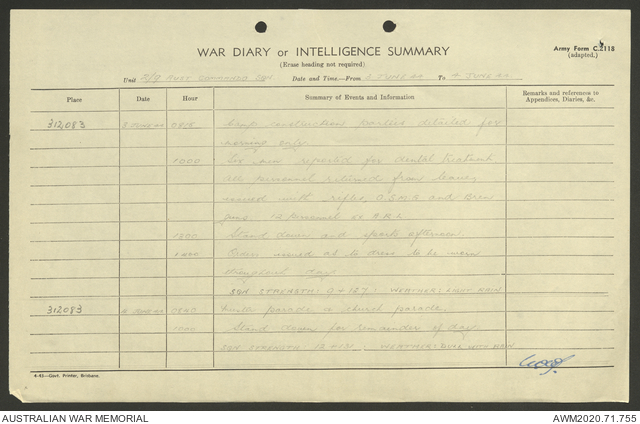 WAR DIARY or INTELLIGENCE SUMMARY
(Erase heading not required)
Army Form C.2118
(adapted.)
Unit 2/9 AUST COMMANDO SQN. Date and Time.—From 3 JUNE 44 To 4 JUNE 44.
Place Date Hour Summary of Events and Information Remarks and reference to
Appendices, Diaries, &c.
312083 3 JUNE 44 Camp construction parties detailed for
morning only.
1000 Six men reported for dental treatment
All personnel returned from leave
issued with rifles, O.S.M.G and Bren
guns. 12 personnel
Stand down and sports afternoon.
Orders issued as to dress to be worn
throughout day
SQN STRENGTH: 9 + 127 : WEATHER: LIGHT RAIN
312083 4 JUNE 44 parade church parade
Stand down for remainder of day
SQN STRENGTH WEATHER: RAIN
4-43—Govt. Printer, Brisbane.
AUSTRALIAN WAR MEMORIAL AWM2020.71.755